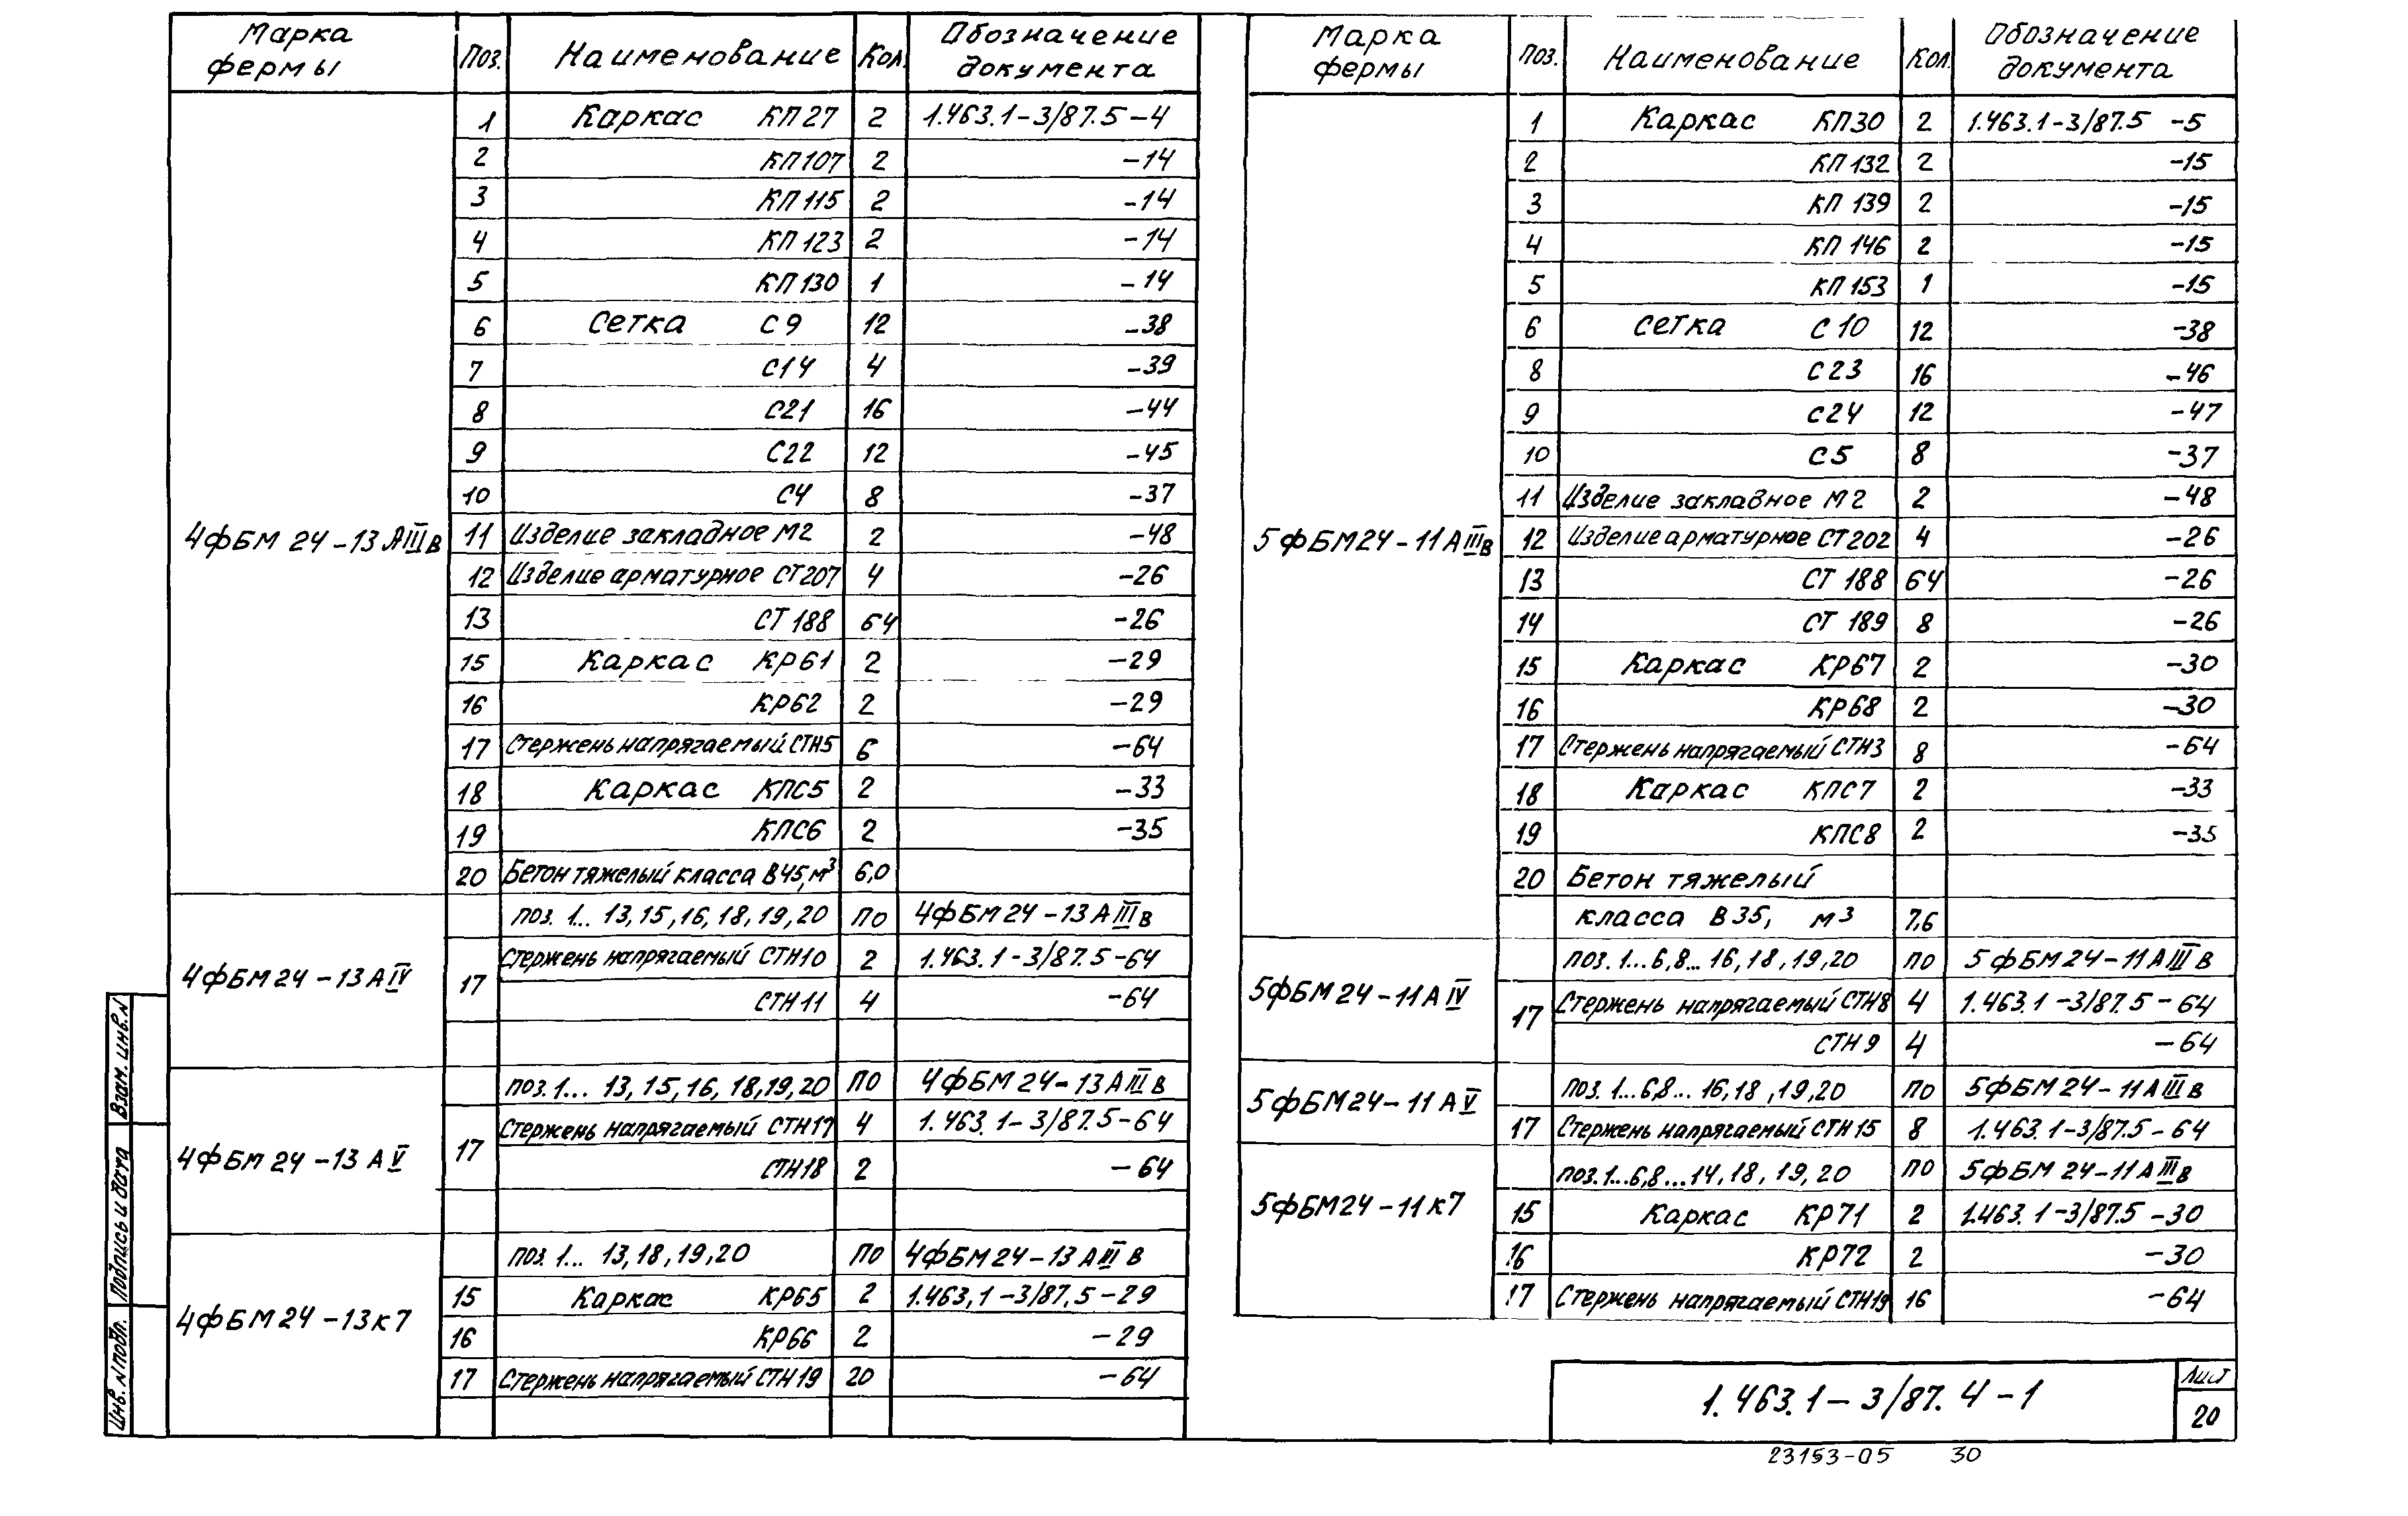 Марка фермы Поз. Наименование Кол. Обозначение документа
4ФБМ 24-13 АIIIв
1 Каркас КП27 2 1.463.1-3/87.5-4
2 КП107 2 -14
3 КП115 2 -14
4 КП123 2 -14
5 КП130 1 -14
6 Сетка С9 12 -38
7 С14 4 -39
8 С21 16 -44
9 С22 12 -45
10 С4 8 -37
11 Изделие закладное М2 2 -48
12 Изделие арматурное СТ207 4 -26
13 СТ188 64 -26
15 Каркас КР61 2 -29
16 КР62 2 -29
17 Стержень напрягаемый СТН5 6 -64
18 Каркас КПС5 2 -33
19 КПС6 2 -35
20 Бетон тяжелый класса В45, м³ 6,0
4ФБМ24-13АIV
поз. 1... 13, 15, 16, 18, 19, 20 по 4ФБМ24-13АIIIв
17 Стержень напрягаемый СТН10 2 1.463.1-3/87.5-64
СТН11 4 -64
4ФБМ24-13АV
поз. 1... 13, 15, 16, 18, 19, 20 по 4ФБМ24-13АIIIв
17 Стержень напрягаемый СТН17 4 1.463.1-3/87.5-64
СТН18 2 -64
4ФБМ24-13к7
поз. 1... 13, 18, 19, 20 по 4ФБМ24-13АIIIв
15 Каркас КР65 2 1.463,1-3/87.5-29
16 КР66 2 -29
17 Стержень напрягаемый СТН19 20 -64
Марка фермы Поз. Наименование Кол. Обозначение документа
5ФБМ24-11АIIIв
1 Каркас КП30 2 1.463.1-3/87.5 -5
2 КП132 2 -15
3 КП139 2 -15
4 КП146 2 -15
5 КП153 1 -15
6 Сетка С10 12 -38
8 С23 16 -46
9 С24 12 -47
10 С5 8 -37
11 Изделие закладное М2 2 -48
12 Изделие арматурное СТ202 4 -26
13 СТ188 64 -26
14 СТ189 8 -26
15 Каркас КР67 2 -30
16 КР68 2 -30
17 Стержень напрягаемый СТН3 8 -64
18 Каркас КПС7 2 -33
19 КПС8 2 -35
20 Бетон тяжелый
класса В35, м³ 7,6
5ФБМ24-11АIV
поз. 1...6,8... 16, 18, 19, 20 по 5ФБМ24-11АIIIв
17 Стержень напрягаемый СТН8 4 1.463.1-3/87.5-64
СТН9 4 -64
5ФБМ24-11АV
поз. 1...6,8... 16, 18, 19, 20 по 5ФБМ24-11АIIIв
17 Стержень напрягаемый СТН15 8 1.463.1-3/87.5-64
5ФБМ24-11к7
поз. 1...6,8...14, 18, 19, 20 по 5ФБМ24-11АIIIв
15 Каркас КР71 2 1.463.1-3/87.5-30
16 КР72 2 -30
17 Стержень напрягаемый СТН19 16 -64
Взам. инв. N
Подпись и дата
Инв. N подл.
1.463.1-3/87.4-1
Лист
20
23153-05 30